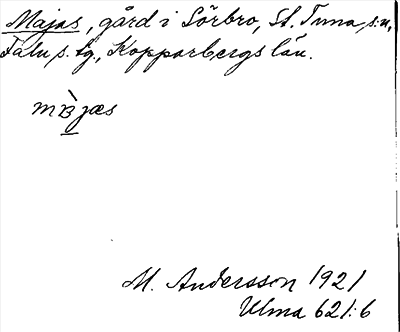 Majas, gård i Sörbro, St. Tuna, s:n,
Falu s. tg., Kopparbergs län.
mʙ̀jæs
M. Andersson 1921
Ulma 621:6